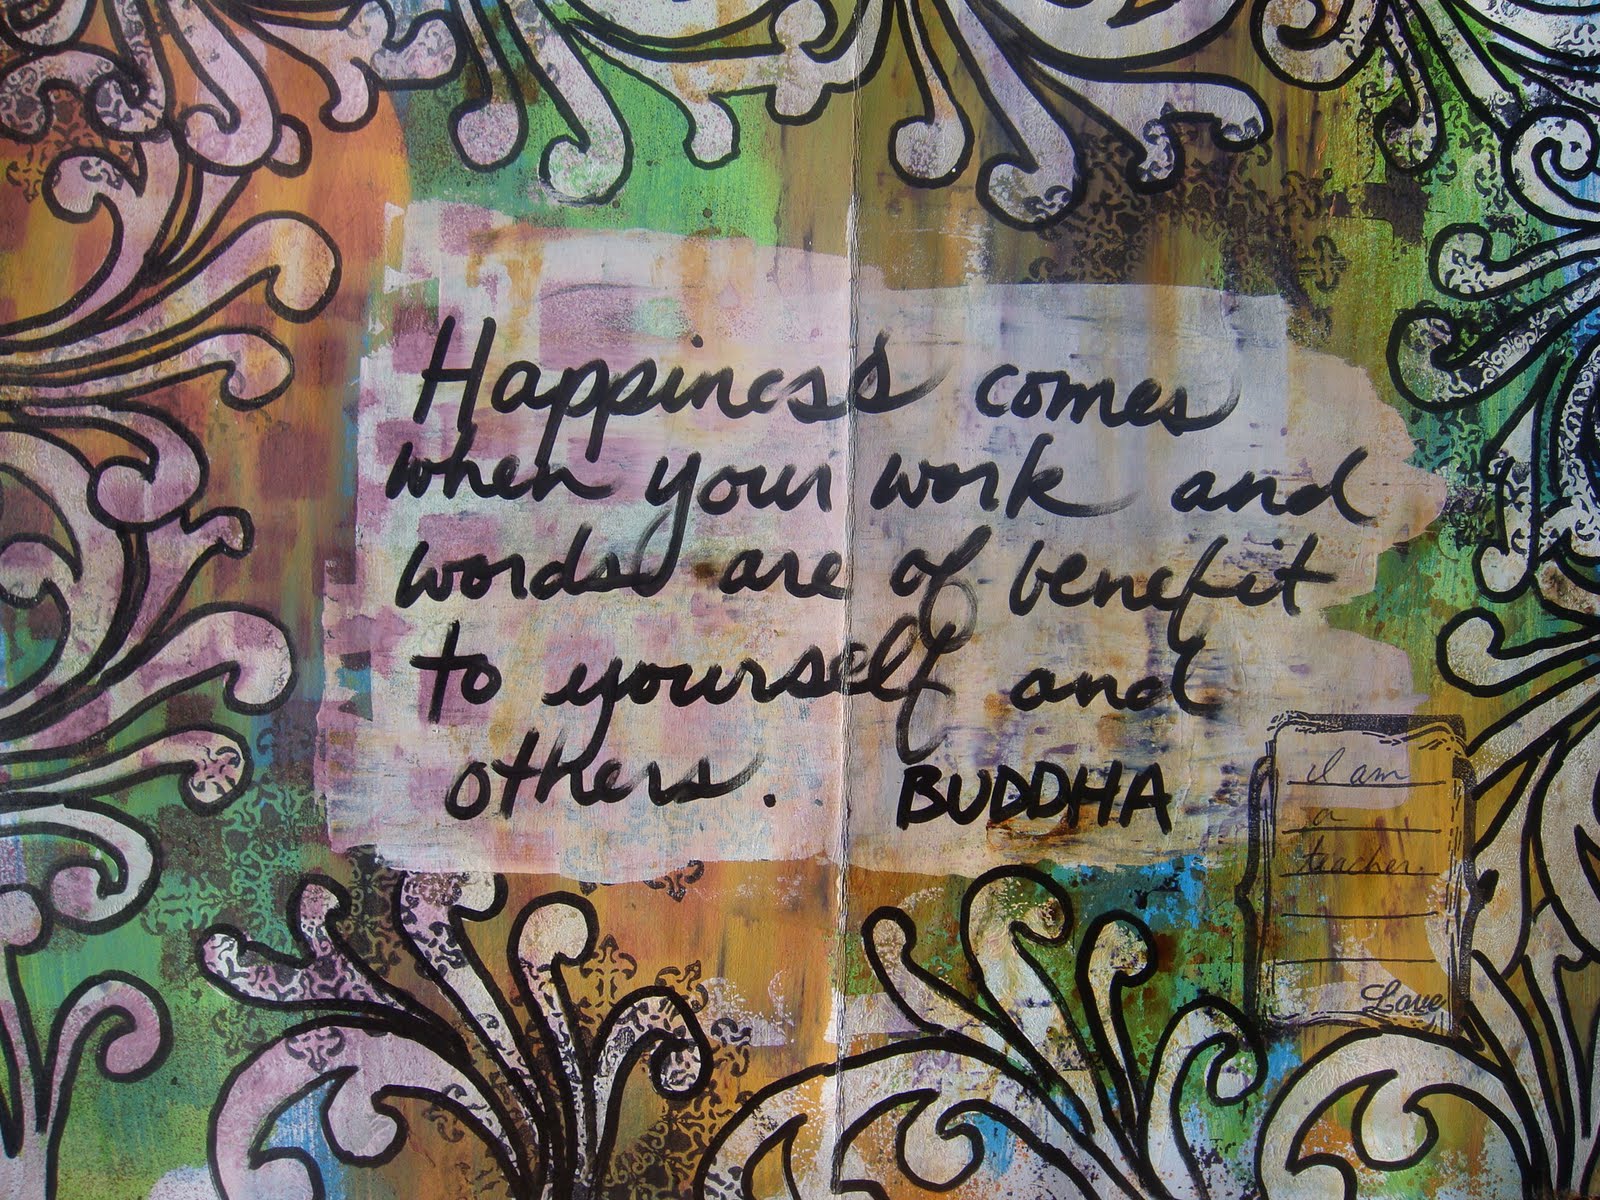 Happiness comes
when your work and
words are of benefit
to yourself and
others. BUDDHA
I am
a
teacher.
Love